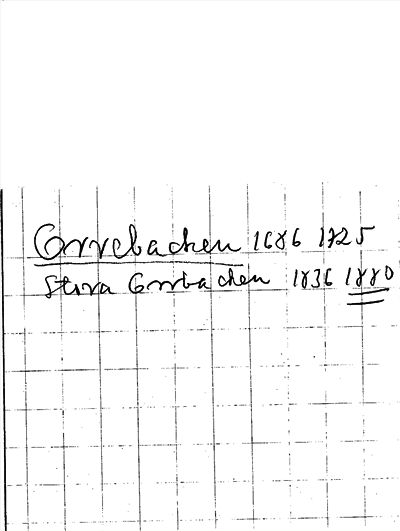 Grrebacken 1686 1725
Stora Grrbacken 1836 1880